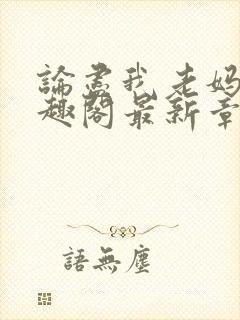 論盡我老媽
趣閣最新章
語無塵